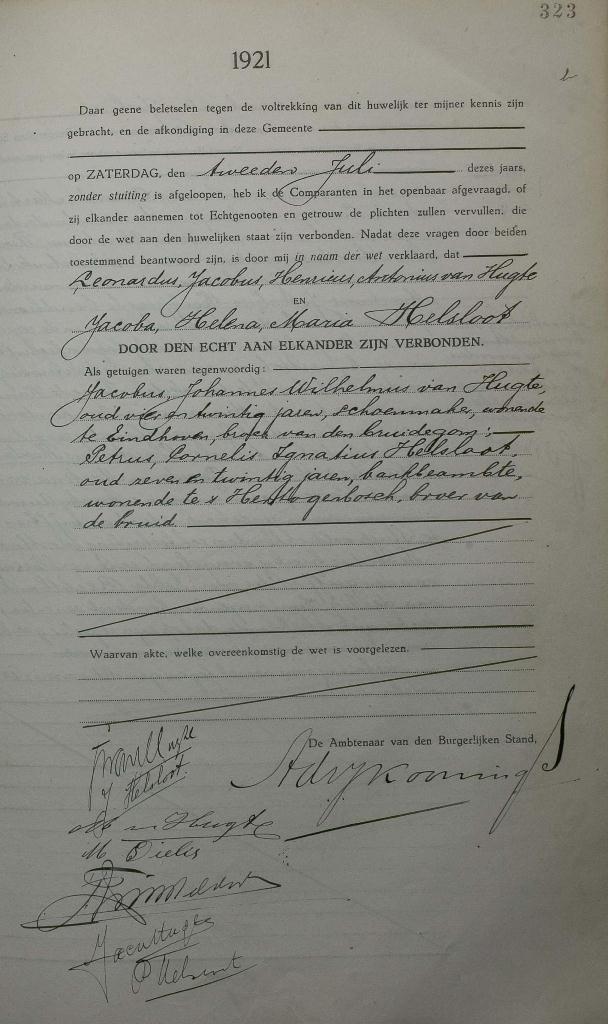 323
1921
Daar geene beletselen tegen de voltrekking van dit huwelijk ter mijner kennis zijn
gebracht, en de afkondiging in deze Gemeente
op ZATERDAG, den tweeden Juli dezes jaars,
zonder stuiting is afgeloopen, heb ik de Comparanten in het openbaar afgevraagd, of
zij elkander aannemen tot Echtgenooten en getrouw de plichten zullen vervullen, die
door de wet aan den huwelijken staat zijn verbonden. Nadat deze vragen door beiden
toestemmend beantwoord zijn, is door mij in naam der wet verklaard, dat
Leonardus, Jacobus, Henricus, Antonius van Hugte
EN
Jacoba, Helena, Maria Helsloot
DOOR DEN ECHT AAN ELKANDER ZIJN VERBONDEN.
Als getuigen waren tegenwoordig:
Jacobus, Johannes Wilhelmus van Hugte,
oud vier en twintig jaren, schoenmaker, wonende
te Eindhoven, broer van den bruidegom;
Petrus, Cornelis Ignatius Helsloot,
oud zeven en twintig jaren, bankbeambte,
wonende te s Hertogenbosch, broer van
de bruid.
Waarvan akte, welke overeenkomstig de wet is voorgelezen.
De Ambtenaar van den Burgerlijken Stand,
J Helsloot
v Hugte
M Dielis
P Helsloot